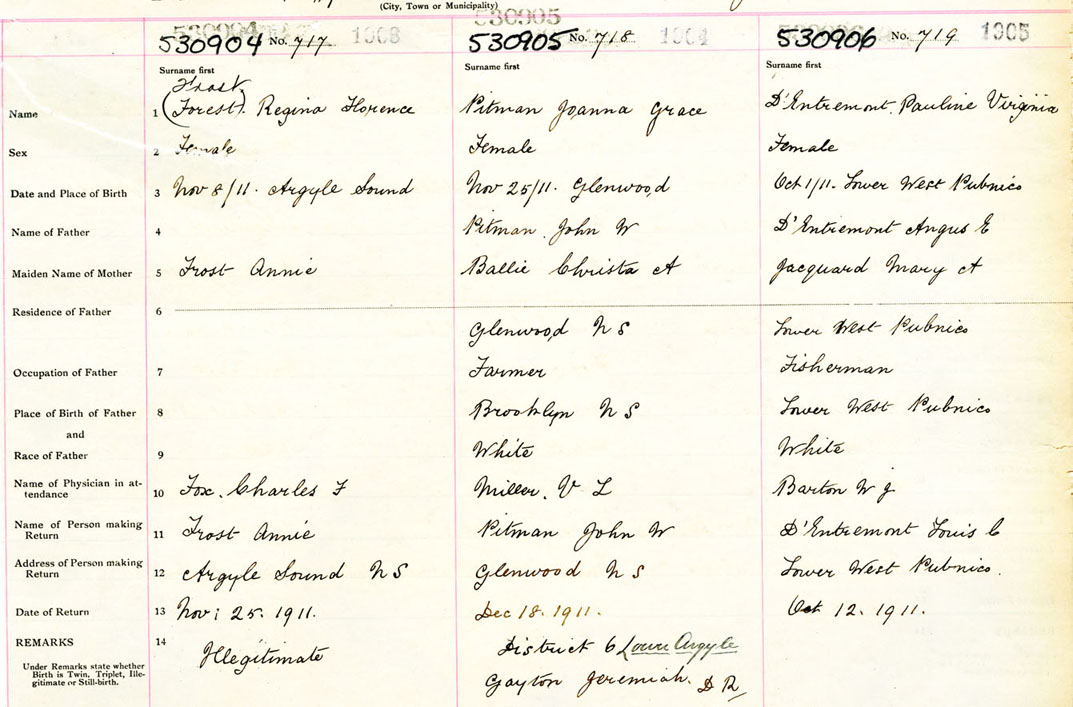 (City, Town or Municipality)
530904 No. 717 1903
530905 No. 718 1904
530906 No. 719 1905
530905
Surname first Surname first Surname first
Frost
Name 1 (Forest). Regina Florence Pitman Joanna Grace D'Entremont. Pauline Virginia
Sex 2 Female Female Female
Date and Place of Birth 3 Nov 8/11. Argyle Sound Nov 25/11. Glenwood Oct 1/11. Lower West Pubnico
Name of Father 4 Pitman. John W D'Entremont Angus E
Maiden Name of Mother 5 Frost Annie Ballie Christa A Jacquard Mary A
Residence of Father 6
Glenwood N S Lower West Pubnico
Occupation of Father 7 Farmer Fisherman
Place of Birth of Father 8 Brooklyn N S Lower West Pubnico
and
Race of Father 9 White White
Name of Physician in at-
tendance 10 Fox. Charles F Miller. V L Barton W J
Name of Person making
Return 11 Frost Annie Pitman John W D'Entremont Louis C
Address of Person making
Return 12 Argyle Sound N S Glenwood N S Lower West Pubnico.
Date of Return 13 Nov: 25. 1911. Dec 18. 1911. Oct 12. 1911.
REMARKS 14 Illegitimate District 6 Lower Argyle
Under Remarks state whether
Birth is Twin, Triplet, Ille-
gitimate or Still-birth.
Gayton Jeremiah. D R